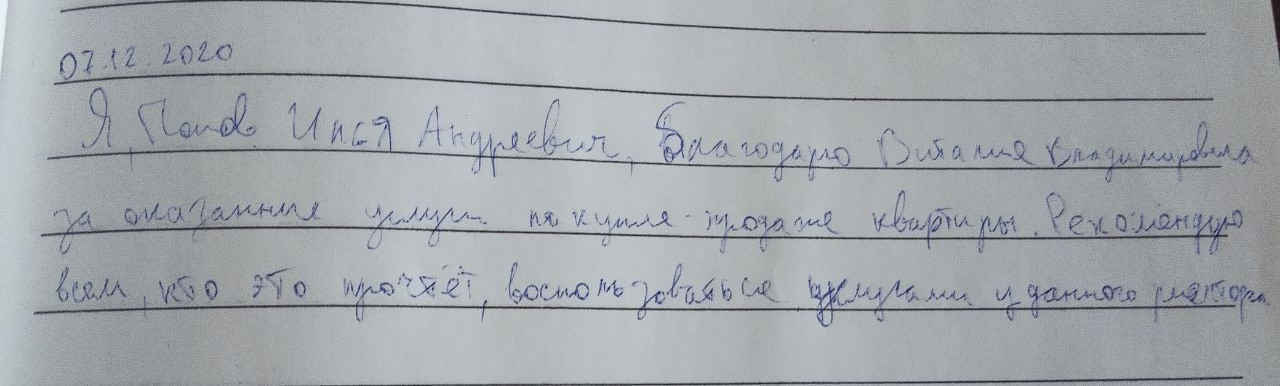 07.12.2020
Я, Попов Илья Андреевич, благодарю Виталия Владимировича
за оказанные услуги по купле-продаже квартиры. Рекомендую
всем, кто это прочтёт, воспользоваться услугами у данного риэлтора